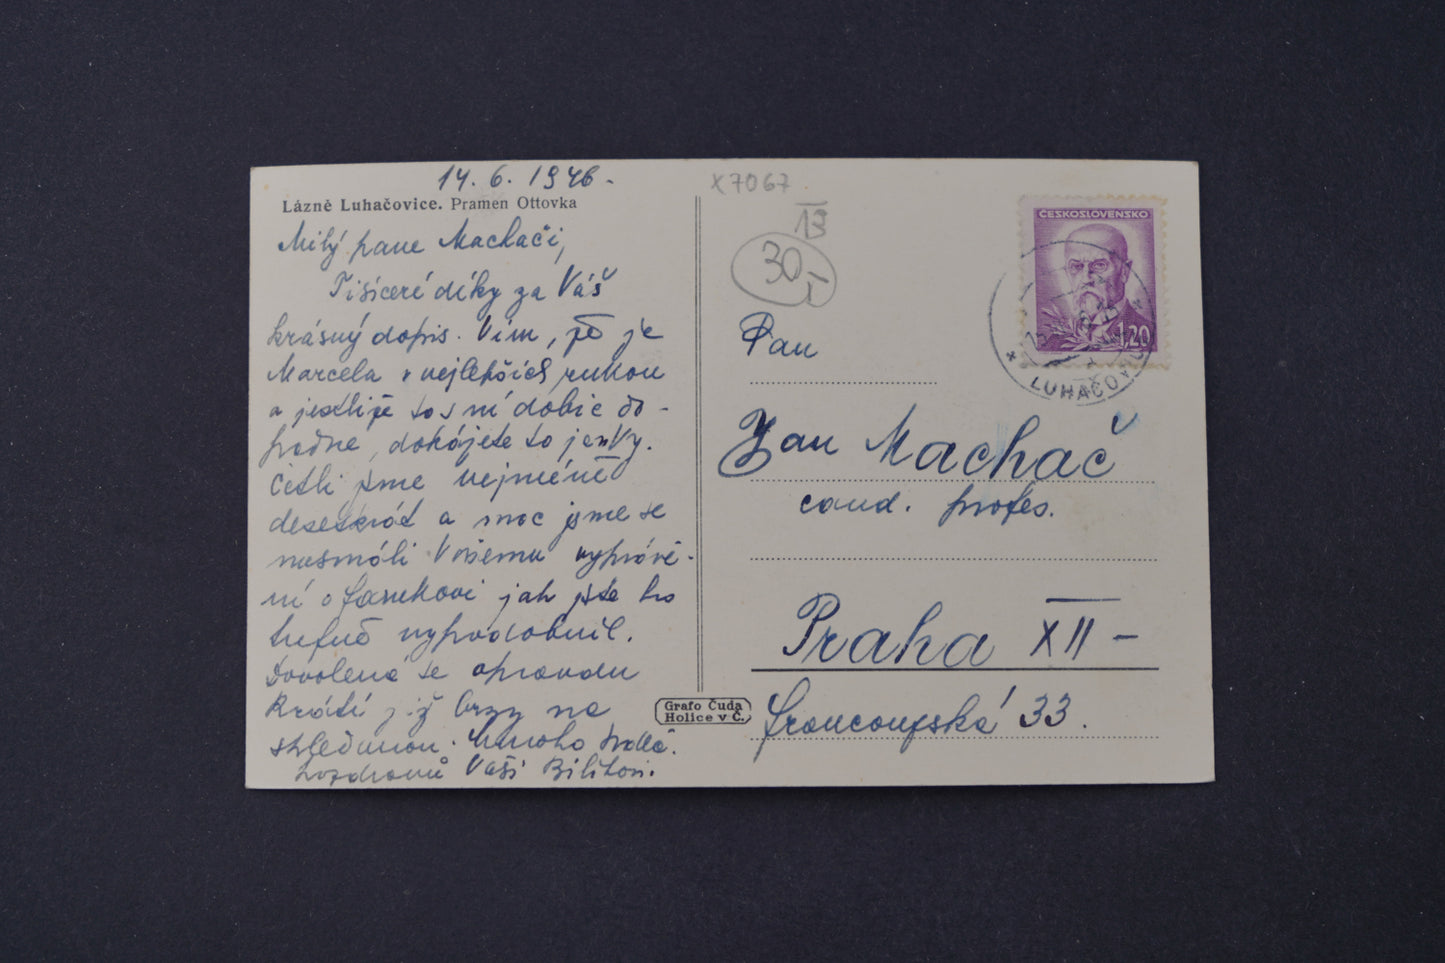 14. 6. 1946.
Lázně Luhačovice. Pramen Ottovka
Milý pane Machači,
Tisíceré díky za Váš
krásný dopis. Vím, že je
Marcela v nejlepších rukou
a jestliže to s ní dobře do-
padne, dokážete to jen Vy.
Četli jsme nejméně
desetkrát a moc jsme se
nasmáli Vašemu vyprávě-
ní o jak jste ho
trefně vypodobnil.
Dovolená se opravdu
krátí již brzy na
shledanou. Mnoho srdeč.
pozdravů Vaši
X7067
13
30,-
Pan
Jan Machač
cand. profes.
Praha XII –
Francouzská 33.
Grafo Čuda
Holice v Č.
ČESKOSLOVENSKO
1,20
LUHAČOV